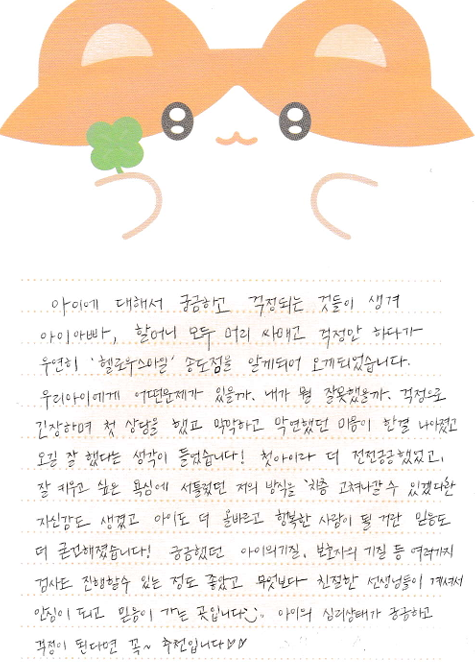 아이에 대해서 궁금하고 걱정되는 것들이 생겨
아이아빠, 할머니 모두 머리 싸매고 걱정만 하다가
우연히 '헬로우스마일' 송도점을 알게되어 오게되었습니다.
우리아이에게 어떤문제가 있을까, 내가 뭘 잘못했을까, 걱정으로
긴장하며 첫 상담을 했고 막막하고 막연했던 마음이 한결 나아졌고
오길 잘 했다는 생각이 들었습니다! 첫아이라 더 전전긍긍했었고,
잘 키우고 싶은 욕심에 서툴렀던 저의 방식을 차츰 고쳐나갈 수 있겠다란
자신감도 생겼고 아이도 더 올바르고 행복한 사람이 될 거란 믿음도
더 굳건해졌습니다! 궁금했던 아이의기질, 보호자의 기질 등 여러가지
검사도 진행할수 있는 점도 좋았고 무엇보다 친절한 선생님들이 계셔서
안심이 되고 믿음이 가는 곳입니다 아이의 심리상태가 궁금하고
걱정이 된다면 꼭~ 추천입니다♡♡